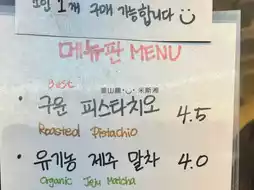 1개 구매 가능합니다
메뉴판 MENU
Best
구운 피스타치오 4.5
Roasted Pistachio
• 유기농 제주 말차 4.0
Organic Jeju Matcha